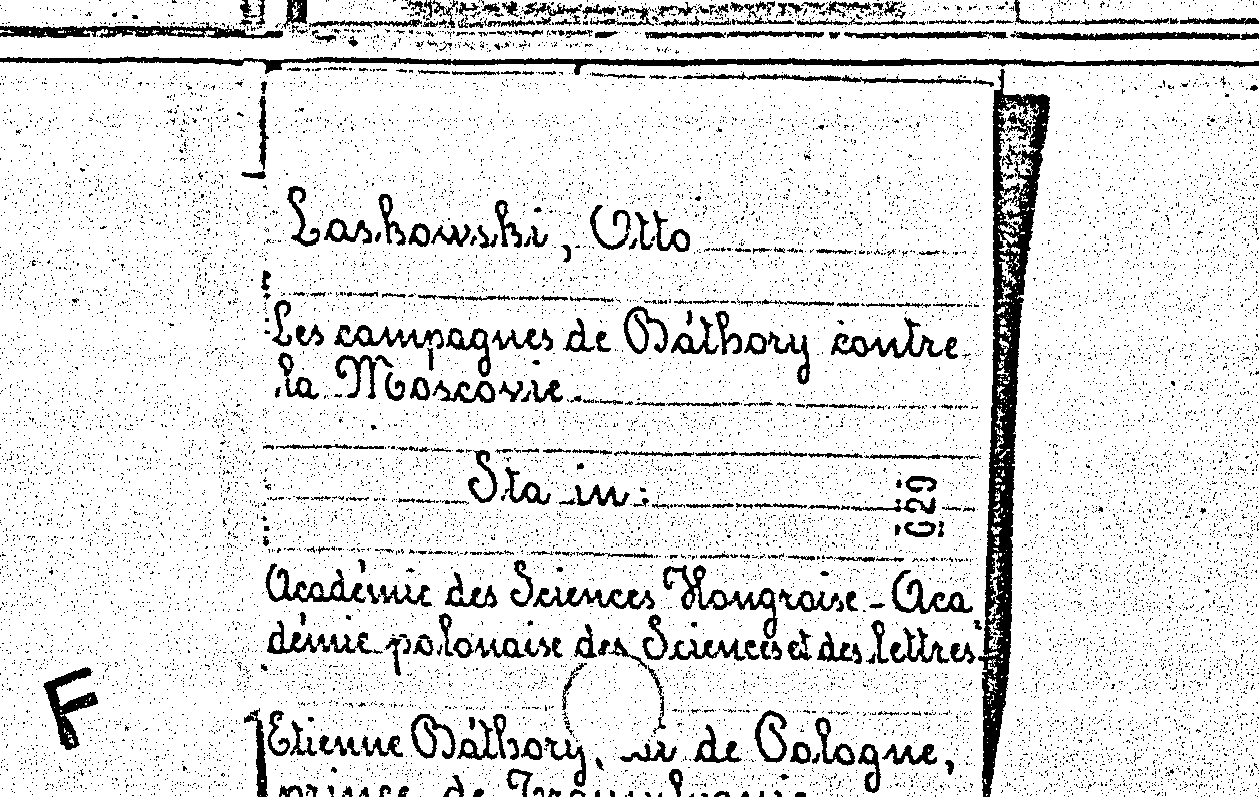 Laskowski, Otto
Les campagnes de Báthory contre
la Moscovie.
Sta in:
629
Académie des Sciences Hongroise - Aca
démie polonaise des Sciences et des lettres.
F
Etienne Báthory, roi de Pologne,
prince de Transylvanie